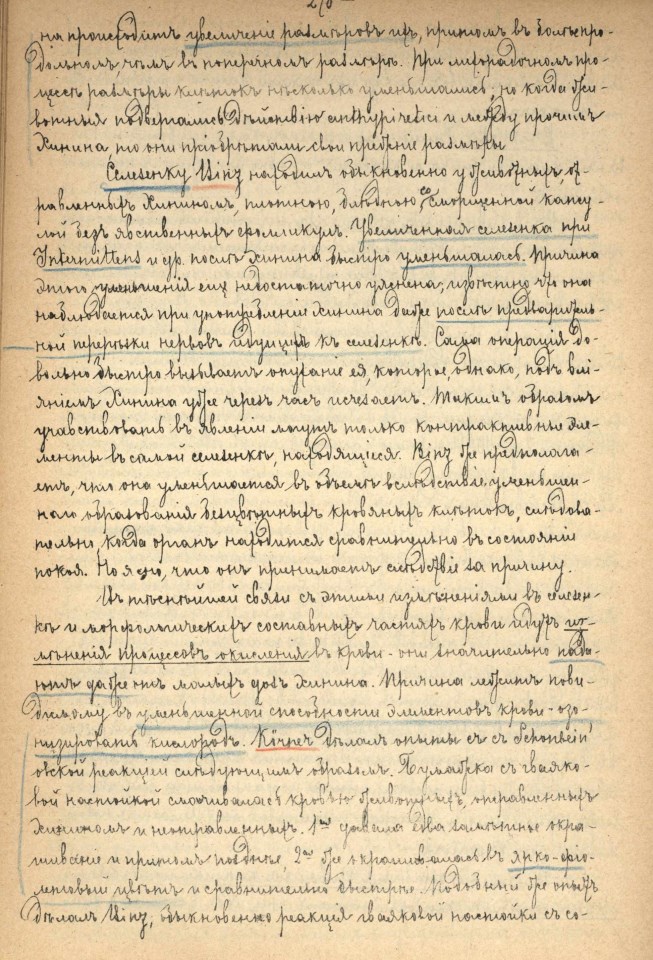 ня происходитъ увеличеніе размѣровъ ихъ, притомъ въ болѣе про-
дольномъ, чѣмъ въ поперечномъ размѣрѣ. При лихорадочномъ про-
цессѣ размѣры клѣтокъ нѣсколько уменьшались; но когда жи-
вотныя подвергались дѣйствію antipyretici и между прочимъ
Хинина, то они пріобрѣтали свои прежніе размѣры
Селезенку Binz находилъ обыкновенно у животныхъ, от-
равленныхъ Хининомъ, плотною, блѣдною со сморщенной капсу-
лой безъ явственныхъ фолликулъ. Увеличенная селезенка при
Intermittens и др. послѣ Хинина быстро уменьшалась. Причина
этого уменьшенія еще недостаточно уяснена; извѣстно что она
наблюдается при употребленіи Хинина даже послѣ предваритель-
ной перерѣзки нервовъ идущихъ къ селезенкѣ. Сама операція до-
вольно быстро вызываетъ опуханіе ея, которое, однако, подъ влі-
яніемъ Хинина уже черезъ часъ исчезаетъ. Такимъ образомъ
учавствовать въ явленіи могутъ только контрактивные эле-
менты въ самой селезенкѣ, находящіеся. Binz же предполага-
етъ, что она уменьшается въ объемѣ вслѣдствіе уменьшен-
наго образованія безцвѣтныхъ кровяныхъ клѣтокъ, слѣдова-
тельно, когда органъ находится сравнительно въ состояніи
покоя. Но я думаю, что онъ принимаетъ слѣдствіе за причину.
Въ тѣснѣйшей связи съ этими измѣненіями въ селезен-
кѣ и морфологическихъ составныхъ частяхъ крови идутъ из-
мѣненія процессовъ окисленія въ крови - они значительно пада-
ютъ даже отъ малыхъ дозъ Хинина. Причина лежитъ пови-
димому въ уменьшенной способности элементовъ крови - озо-
низировать кислородъ. Körner дѣлалъ опыты съ съ Schönbein'
овской реакціей слѣдующимъ образомъ. Бумажка съ гваяко-
вой настойкой смачивалась кровью животныхъ, отравленныхъ
Хининомъ и неотравленныхъ. 1-ая давала едва замѣтное окра-
шиваніе и притомъ позднѣе, 2-ая же окрашивалась въ ярко-фіо-
летовый цвѣтъ и сравнительно быстрѣе. Подобный же опытъ
дѣлалъ Binz; обыкновенно реакція гваяковой настойки съ со-